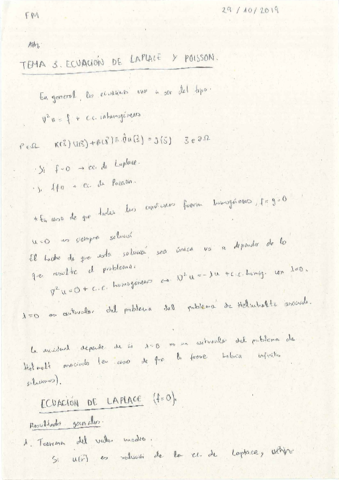 FMM
29/10/2019
TEMA 3. ECUACIÓN DE LAPLACE Y POISSON.
En general, las ecuaciones van a ser del tipo:
∇²u = f + c.c. inhomogéneas
· Si f=0 → ec. de Laplace.
· Si f≠0 → ec. de Poisson.
* En caso de que todas las condiciones fueran homogéneas, f=g=0
u=0 es siempre solución
El hecho de que esta solución sea única va a depender de lo
que resulte el problema:
∇²u=0 + c.c. homogéneas ∇²u = -λu + c.c. homog. con λ=0.
λ=0 es autovalor del problema del problema de Helmholtz asociado.
La unicidad depende de si λ=0 es un autovalor del problema de
asociado (en caso de que lo fuese habría infinitas
soluciones).
ECUACIÓN DE LAPLACE (f=0).
Resultados generales:
1. Teorema del valor medio.
Si u(r) es solución de la ec. de Laplace,